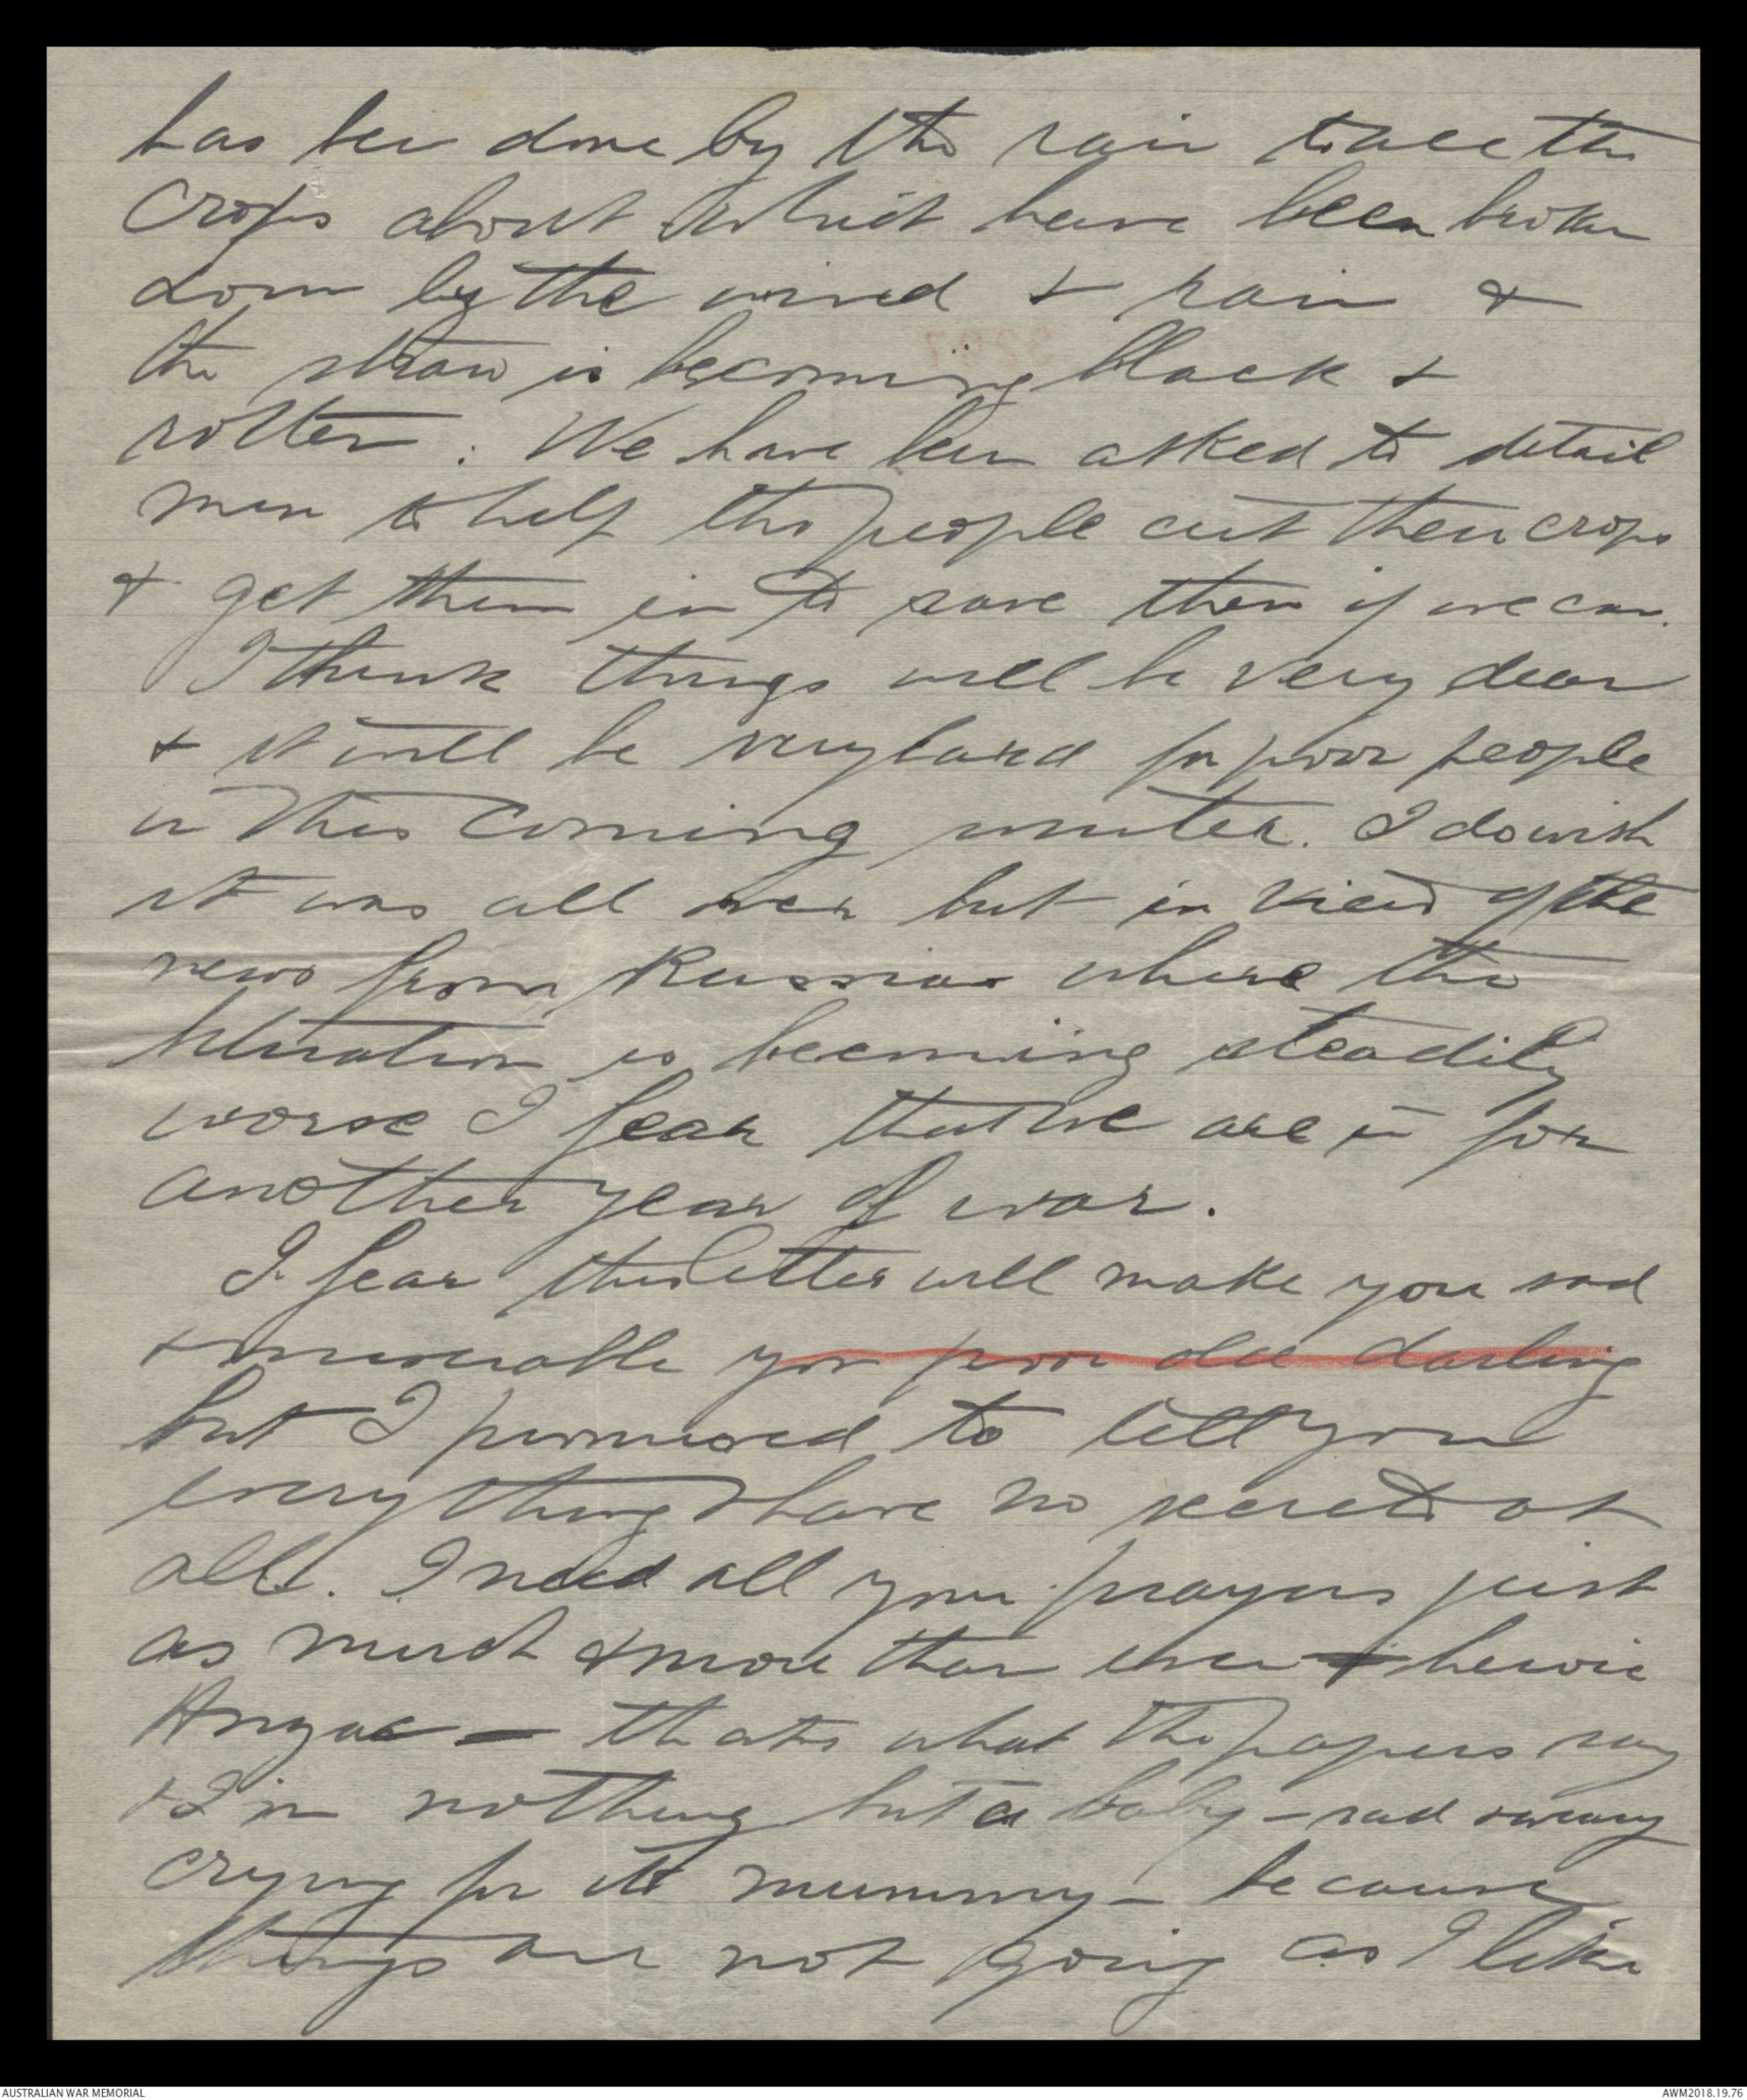 has been done by the rain to all the
crops about which have been broken
down by the wind & rain &
the straw is becoming black &
rotten. We have been asked to detail
men to help the people cut their crops
& get them in to save them if we can.
I think things will be very dear
& it will be very hard for poor people
in this coming winter. I do wish
it was all over but in view of the
news from Russia where the
situation is becoming steadily
worse I fear that we are in for
another year of war.
I fear this letter will make you sad
& miserable you poor old darling
but I promised to tell you
everything & have no secrets at
all. I need all your prayers just
as much & more than ever heroic
Anzac – thats what the papers say
& I'm nothing but a baby – sad & weary
crying for its mummy – because
things are not going as I like
AUSTRALIAN WAR MEMORIAL
AWM2018.19.76